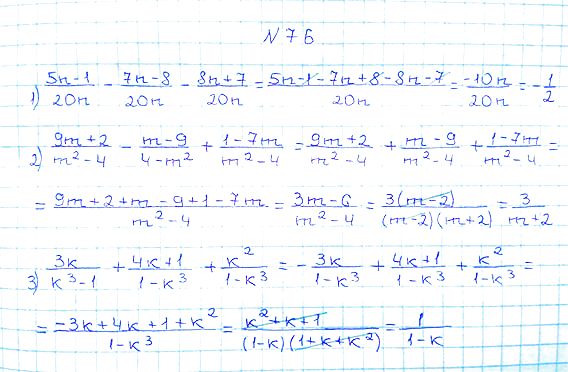 N 76
1) (5n-1)/(20n) - (7n-8)/(20n) - (8n+7)/(20n) = (5n-1-7n+8-8n-7)/(20n) = (-10n)/(20n) = -1/2
2) (9m+2)/(m²-4) - (m-9)/(4-m²) + (1-7m)/(m²-4) = (9m+2)/(m²-4) + (m-9)/(m²-4) + (1-7m)/(m²-4) =
= (9m+2+m-9+1-7m)/(m²-4) = (3m-6)/(m²-4) = (3(m-2))/((m-2)(m+2)) = 3/(m+2)
3) (3k)/(k³-1) + (4k+1)/(1-k³) + (k²)/(1-k³) = - (3k)/(1-k³) + (4k+1)/(1-k³) + (k²)/(1-k³) =
= (-3k+4k+1+k²)/(1-k³) = (k²+k+1)/((1-k)(1+k+k²)) = 1/(1-k)